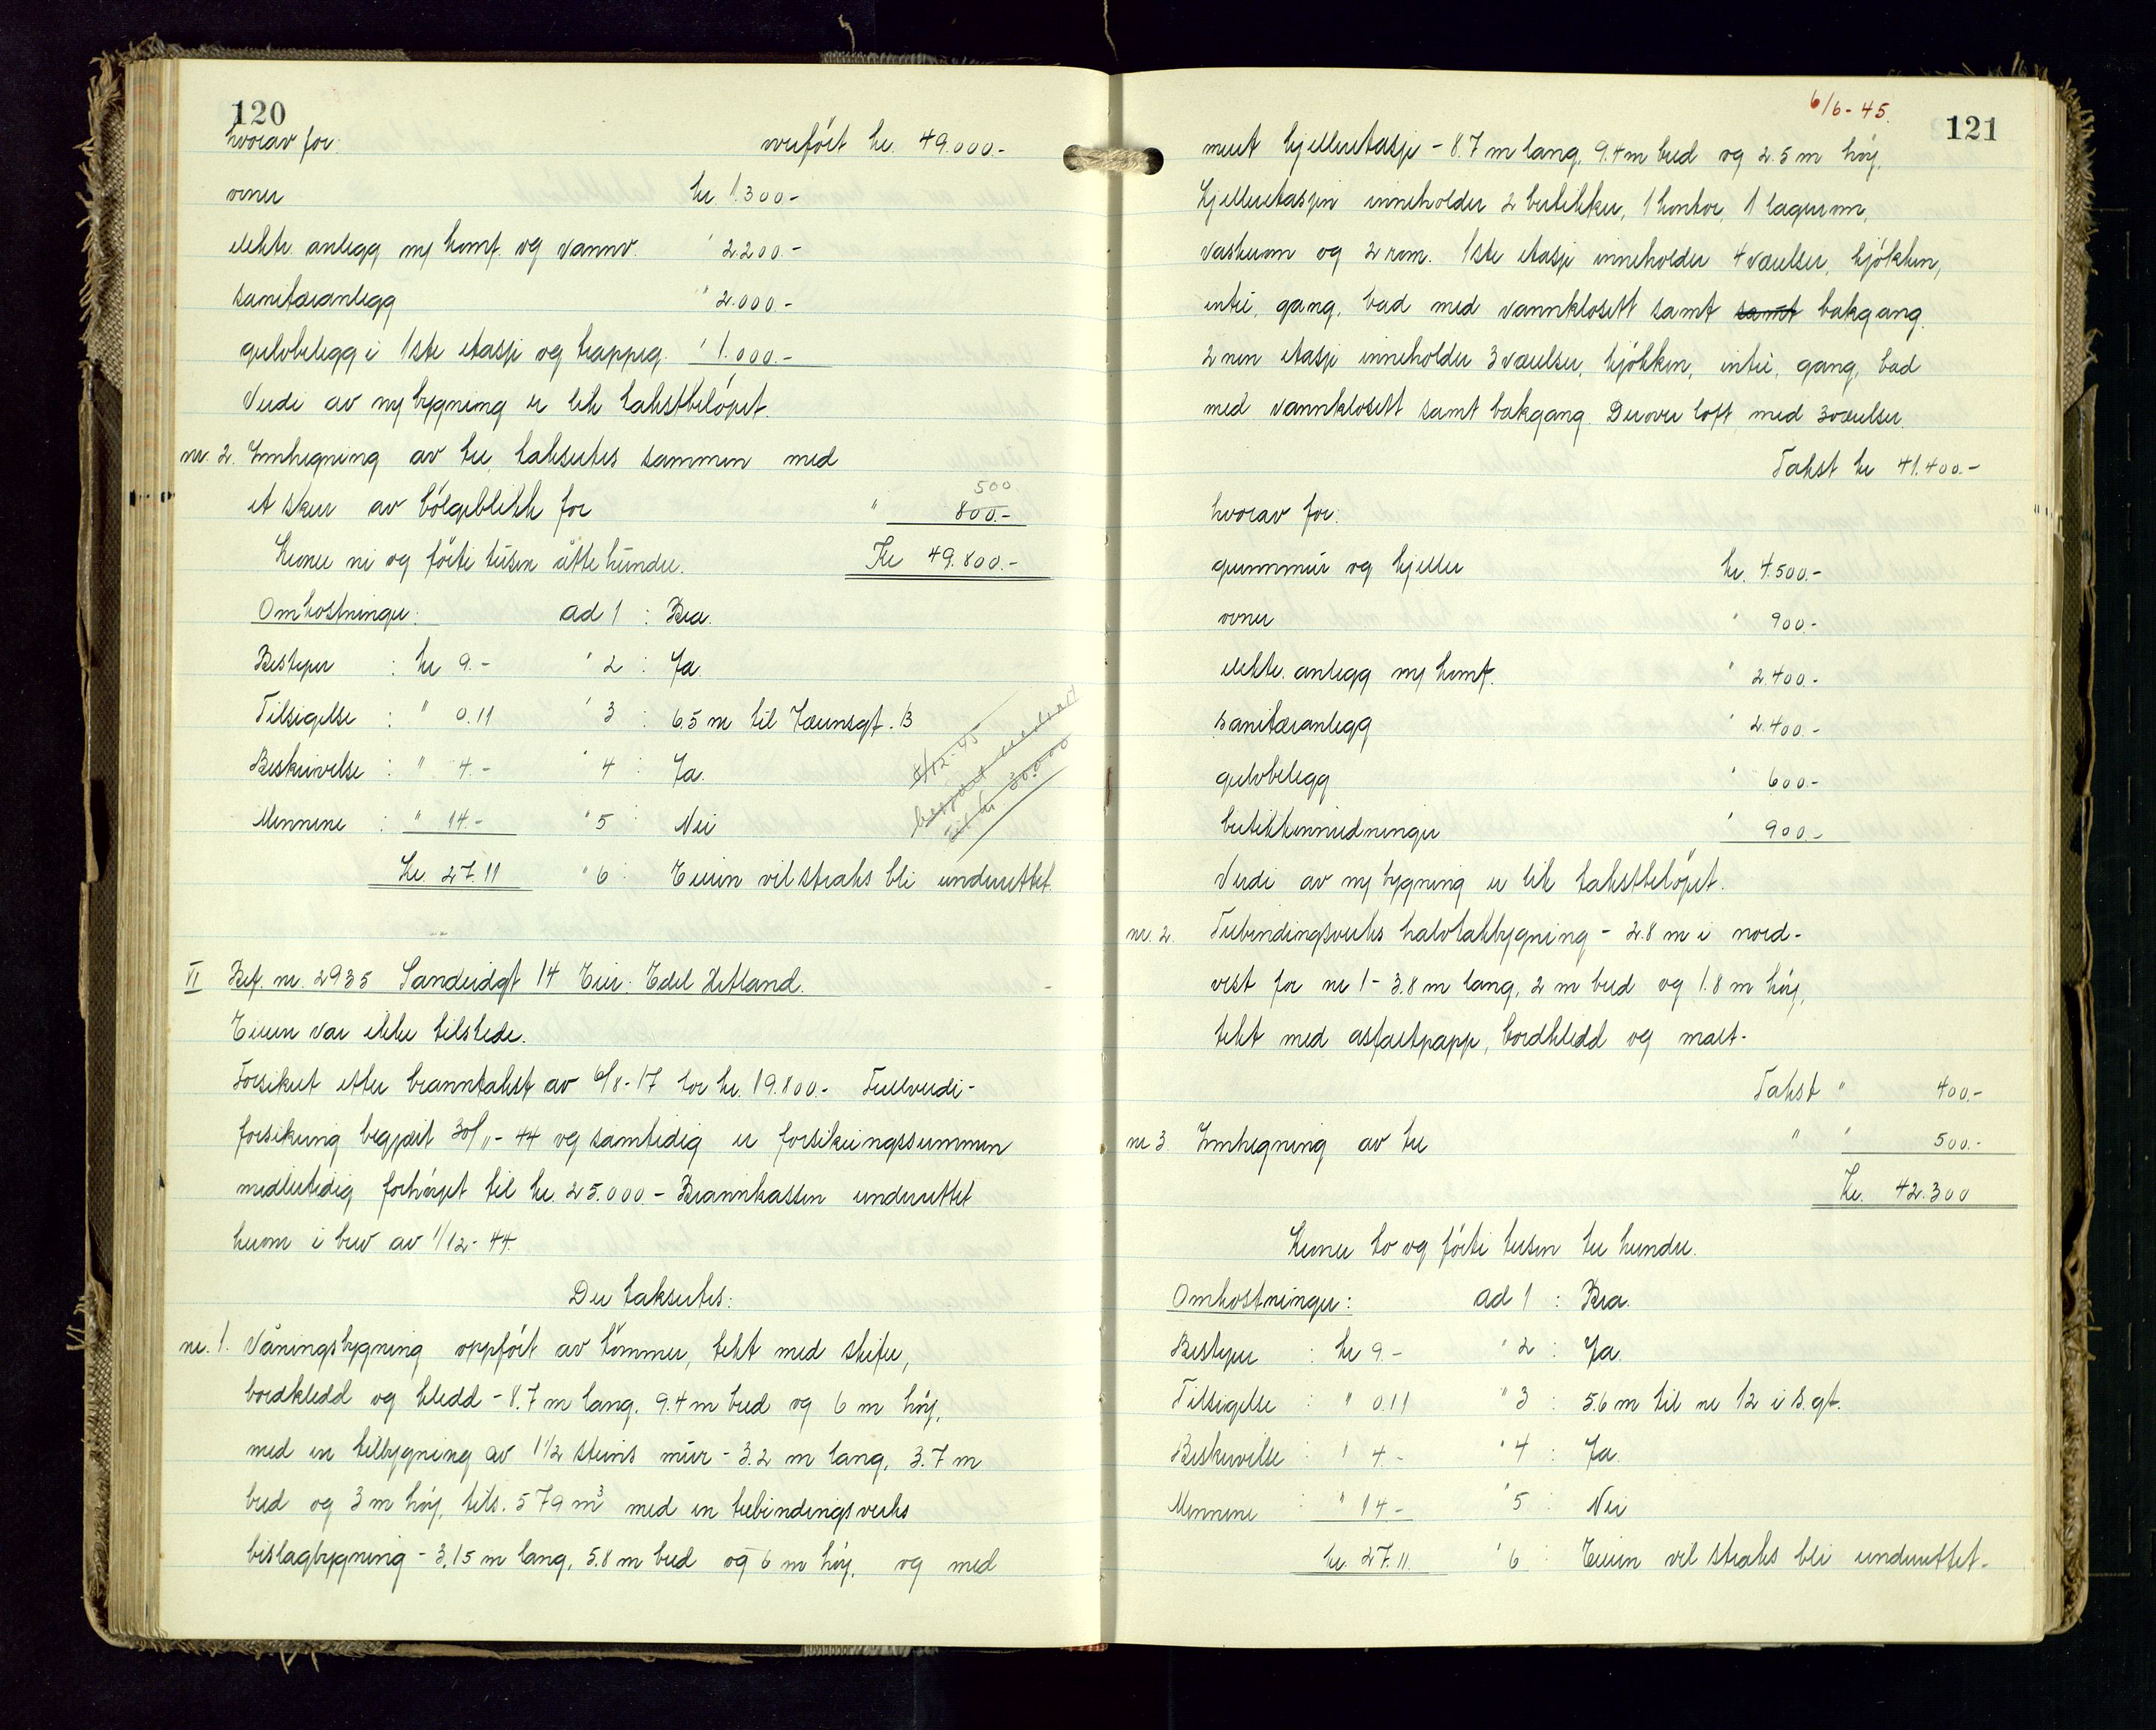 120
hvorav for: overført kr. 49.000.-
ovner kr. 1.300-
elektr. anlegg m/ komf. og vannv. " 2.200.-
sanitæranlegg " 2.000.-
gulvbelegg i 1ste etasje og trappeg. " 1.000.-
Verdi av ny bygning er lik takstbeløpet.
nr. 2. Innhegning av tre takseres sammen med
500
et skur av bölgeblikk for " 800.-
Kroner ni og förti tusen åtte hundre. Kr 49.800.-
Omkostninger: ad 1 : Bra.
Bestyrer : kr 9.- " 2 : Ja.
Tilsigelse : " 0.11 " 3 : 6.5 m til 13
Beskrivelse : " 4.- " 4 : Ja.
8/12-45
begjært nedsatt
til kr 30.000
Mennene : " 14.- " 5 : Nei
Kr. 27.11 " 6 : Eieren vil straks bli underrettet.
VI Bef. nr. 2935 Sandeidgt 14 Eier: Edel Hetland.
Eieren var ikke tilstede.
Forsikret etter branntakst av 6/8-17 for kr. 19.800.- Fullverdi-
forsikring begjært 30/11-44 og samtidig er forsikringssummen
midlertidig forhöyet til kr. 25.000- Brannkassen underrettet
herom i brev av 1/12-44.
Der takseres:
nr. 1. Våningsbygning oppfört av tömmer, tekt med skifer,
bordkledd og kledd - 8.7 m lang, 9.4 m bred og 6 m höy,
med en tilbygning av 1 1/2 steins mur - 3.2 m lang, 3.7 m
bred og 3 m höy, tils. 579 m3 med en trebindingsverks
bislagbygning - 3,15 m lang, 5.8 m bred og 6 m höy, og med
6/6-45.
121
muret kjelleretasje - 8.7 m lang, 9.4 m bred og 2.5 m höy.
Kjelleretasjen inneholder 2 butikker, 1 kontor, 1 lagerrom,
vaskerom og 2 rom. 1ste etasje inneholder 4 værelser, kjökken,
entré, gang, bad med vannklosett samt samt bakgang.
2nen etasje inneholder 3 værelser, kjökken, entré, gang, bad
med vannklosett samt bakgang. Derover loft med 3 værelser.
Takst kr 41.400.-
hvorav for:
grunnmur og kjeller kr. 4.500.-
ovner " 900.-
elektr. anlegg m/ komf. " 2.400.-
sanitæranlegg " 2.400.-
gulvbelegg " 600.-
butikkinnredninger " 900.-
Verdi av ny bygning er lik takstbelöpet.
nr. 2. Trebindingsverks halvtakbygning - 2.8 m i nord-
vest for nr 1 - 3.8 m lang, 2 m bred og 1.8 m höy,
tekt med asfaltpapp, bordkledd og malt.
Takst " 400.-
nr 3. Innhegning av tre " " 500.-
Kr. 42.300
Kroner to og förti tusen tre hundre.
Omkostninger: ad 1 : Bra.
Bestyrer : kr 9.- " 2 : Ja.
Tilsigelse : " 0.11 " 3 : 5.6 m til nr 12 i S.gt.
Beskrivelse : " 4.- " 4 : Ja.
Mennene : " 14.- " 5 : Nei
kr. 27.11. " 6 : Eieren vil straks bli underrettet.